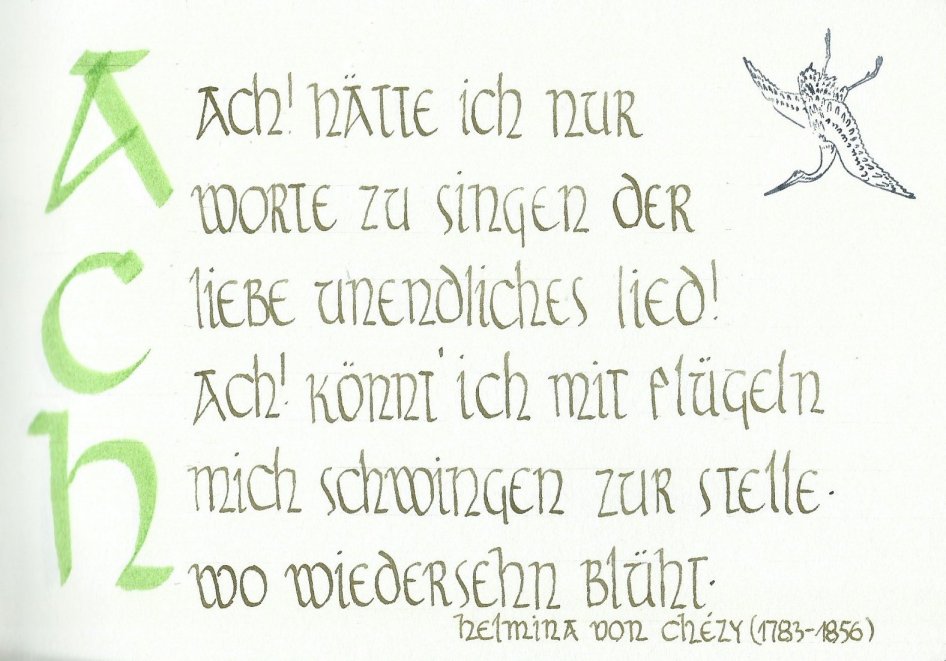 Ach
Ach! hätte ich nur
worte zu singen der
liebe unendliches lied!
Ach! könnt' ich mit flügeln
mich schwingen zur stelle.
wo wiedersehn blüht.
helmina von chézy (1783-1856)